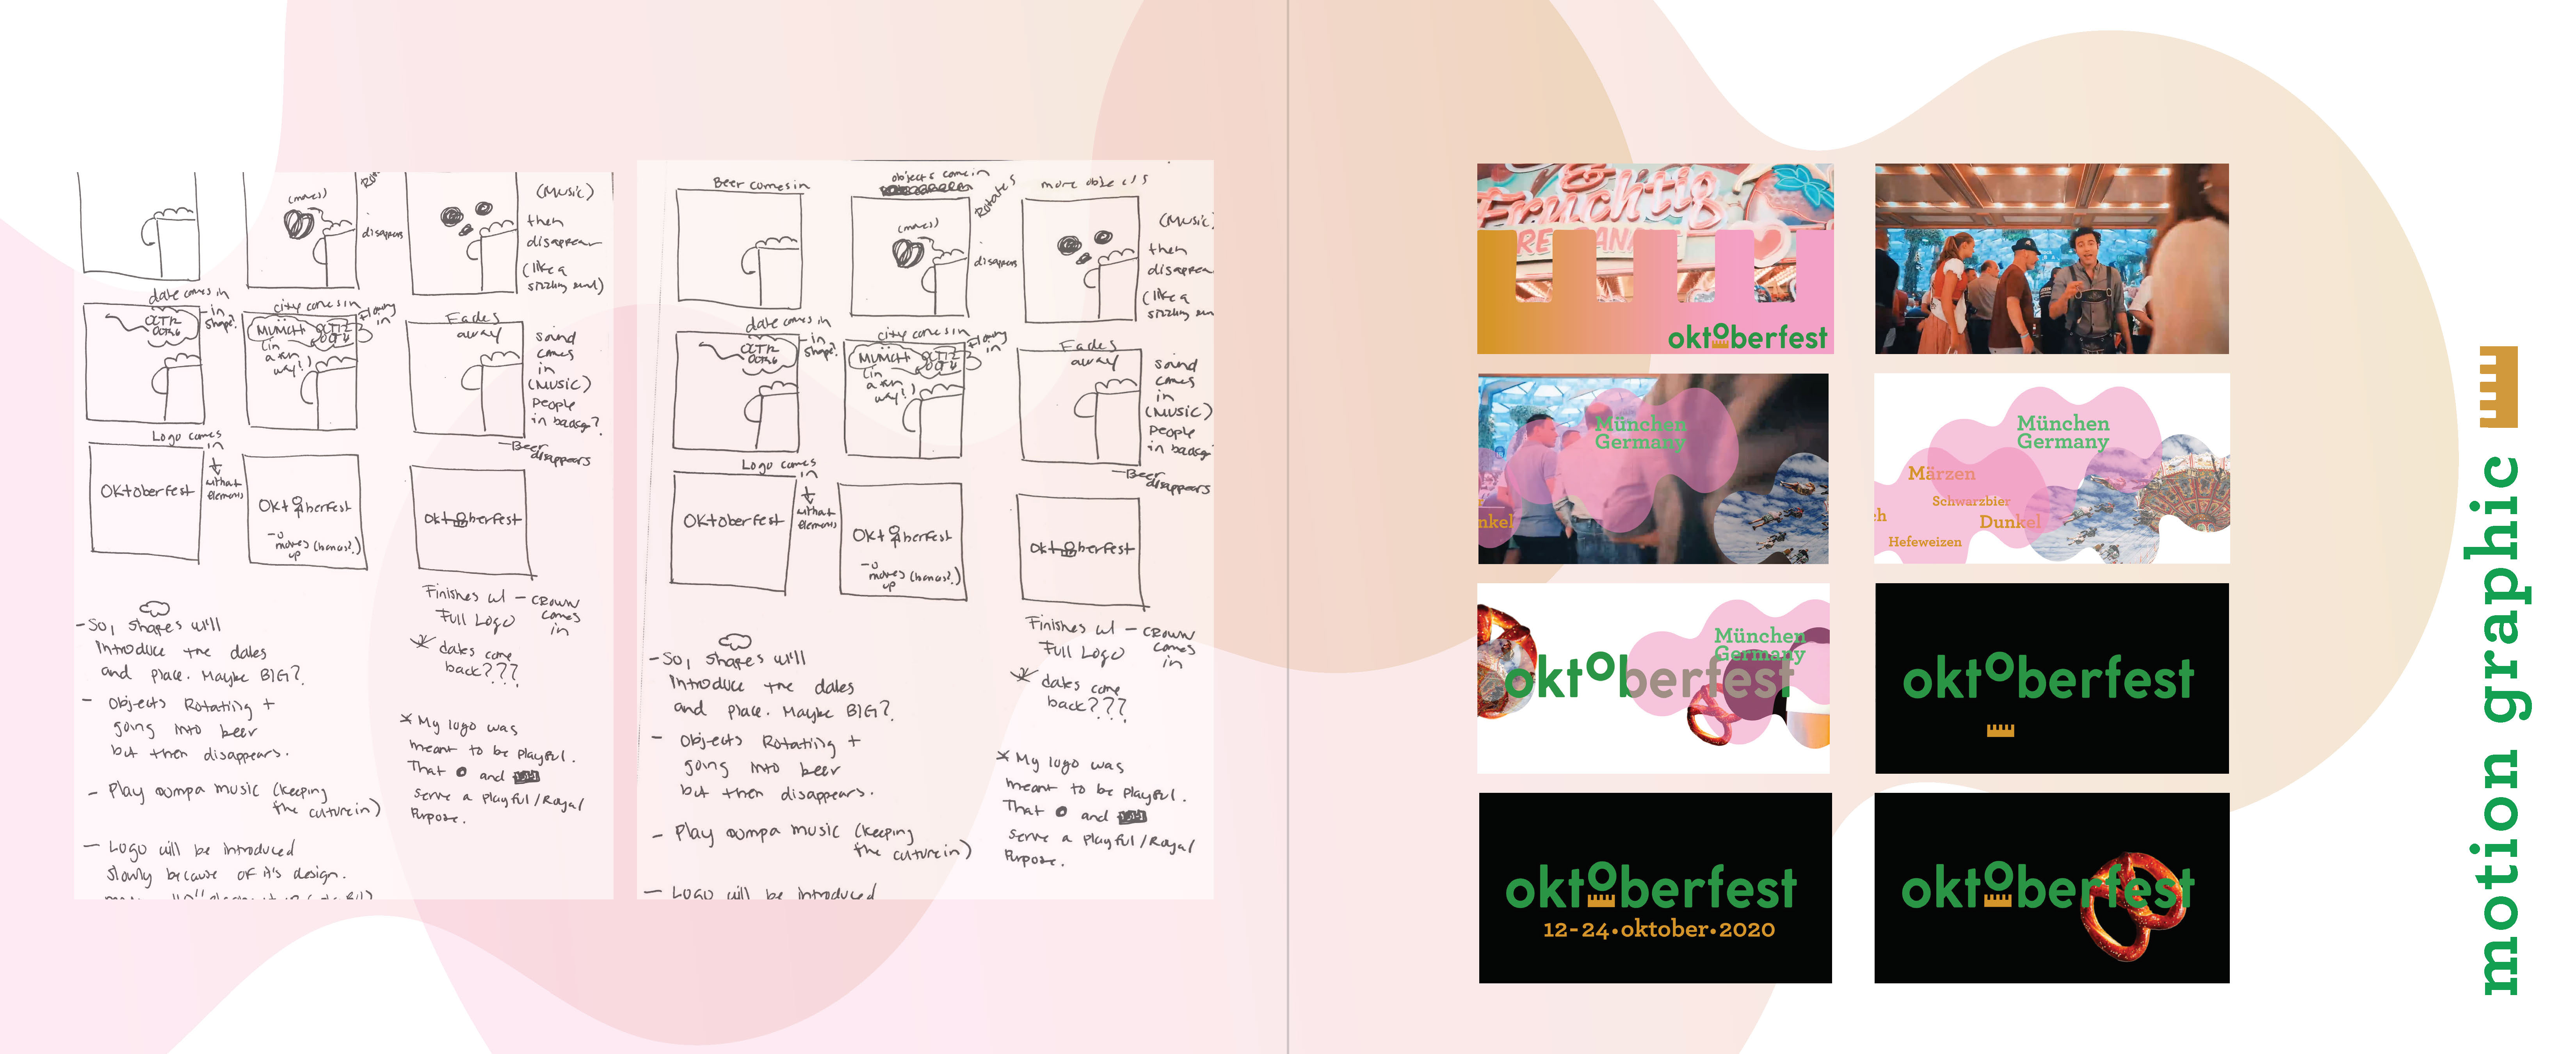 (moves)
(Music)
then
disappear
(like a
sizzling end)
disappears
date comes in
in
shape?
city comes in
flowing
in
OCT 12
MUNICH
(in
a fun
way!)
Fades
away
sound
comes
in
(Music)
People
in backgr?
Beer
disappears
Logo comes
in
without
elements
Oktoberfest
Oktoberfest
-o
moves (bounces?)
up
Oktoberfest
Finishes w/
Full Logo
- Crown
comes
in
dates come
back???
-So, shapes will
Introduce the dates
and place. Maybe BIG?
- Objects Rotating +
going into beer
but then disappears.
- Play oumpa music (keeping
the culture in)
- Logo will be introduced
slowly because of it's design.
* My logo was
meant to be playful.
That o and
serve a playful/Royal
Purpose.
Beer comes in
objects come in
Rotates
more objects
(moves)
disappears
(Music)
then
disappear
(like a
sizzling
date comes in
in
shape?
city comes in
flowing
in
OCT 12
MUNICH
(in
a fun
way!)
Fades
away
sound
comes
in
(Music)
People
in backgr
Beer
disappears
Logo comes
in
without
elements
Oktoberfest
Oktoberfest
-o
moves (bounces?)
up
Oktoberfest
Finishes w/
Full Logo
- Crown
comes
in
dates come
back???
-So, shapes will
Introduce the dates
and place. Maybe BIG?
- Objects Rotating +
going into beer
but then disappears.
- Play oumpa music (keeping
the culture in)
- Logo will be introduced
* My logo was
meant to be playful.
That o and
serve a playful/Royal
Purpose.
Fruchtig
oktoberfest
München
Germany
nkel
München
Germany
Märzen
Schwarzbier
Dunkel
Hefeweizen
München
Germany
oktoberfest
oktoberfest
oktoberfest
12-24•oktober•2020
oktoberfest
motion graphic